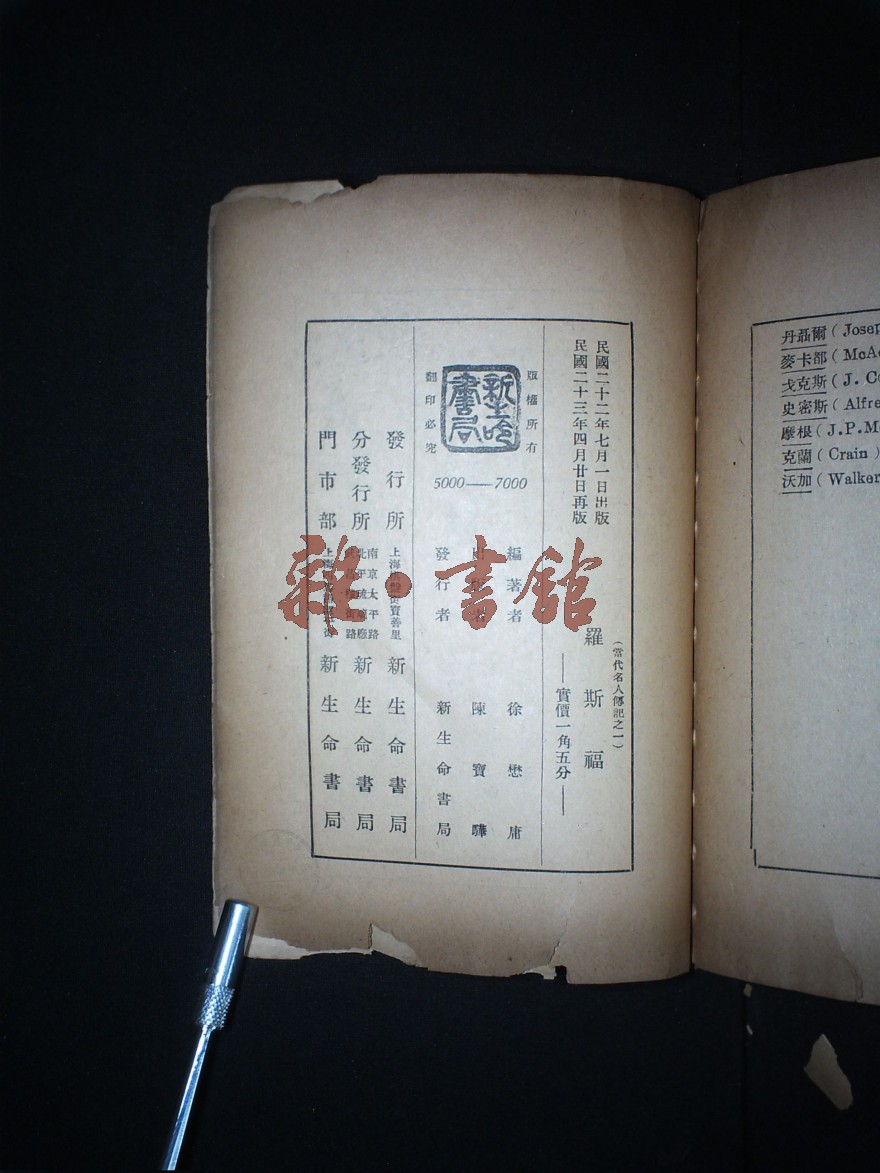 民國二十二年七月一日出版
民國二十三年四月廿日再版
(當代名人傳記之一)
羅斯福
——實價一角五分——
版權所有
新生命書局
翻印必究
5000——7000
編著者 徐懋庸
出版者 陳寶驊
發行者 新生命書局
發行所 上海棋盤街寶善里 新生命書局
分發行所 南京太平路 北平琉璃廠 新生命書局
門市部 上海 新生命書局
雜·書館
丹聶爾(Josep
麥卡部(McA
戈克斯(J. C
史密斯(Alfre
摩根(J.P.M
克蘭(Crain)
沃加(Walker